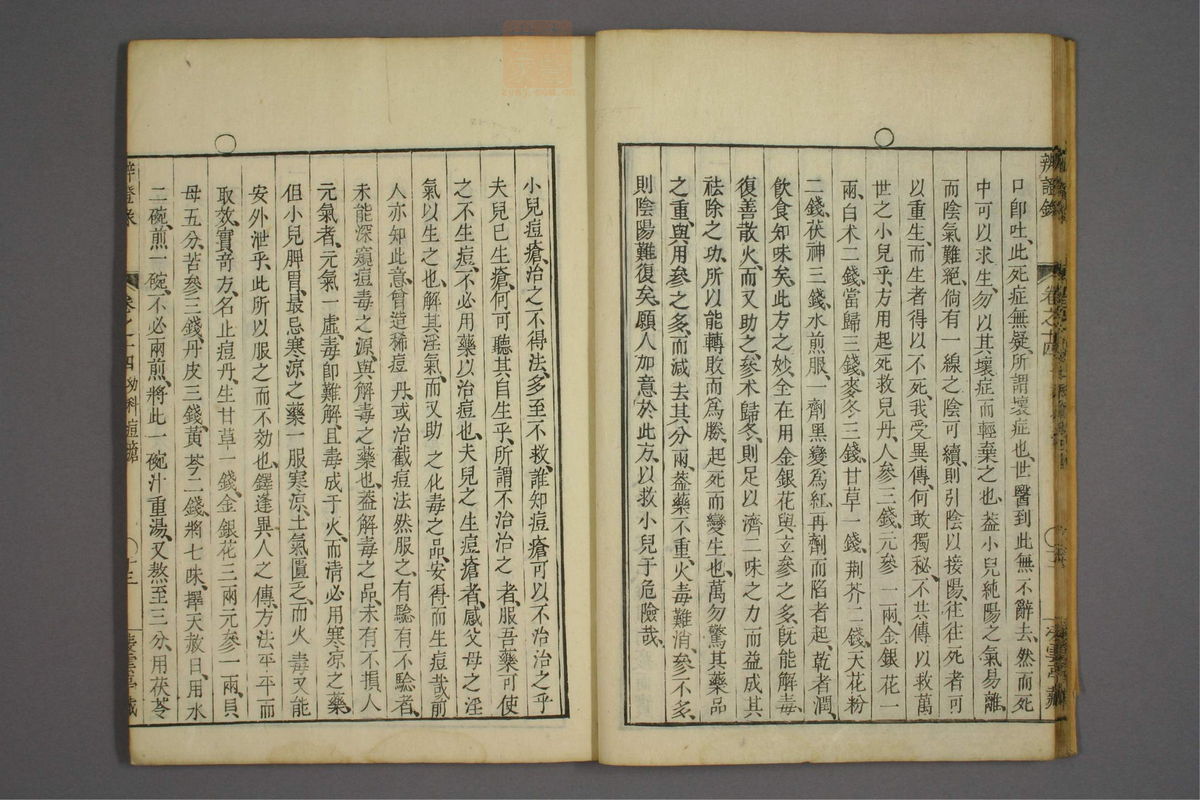 辨證錄
卷之十四
口卽吐、此死症無疑、所謂壞症也、世醫到此無不辭去、然而死
中可以求生、勿以其壞症而輕棄之也、葢小兒純陽之氣易離、
而陰氣難絕、倘有一線之陰可續、則引陰以接陽、往往死者可
以重生、而生者得以不死、我受異傳、何敢獨秘、不共傳以救萬
世之小兒乎、方用起死救兒丹、人參三錢、元參一兩、金銀花一
兩、白术二錢、當歸三錢、麥冬三錢、甘草一錢、荆芥二錢、天花粉
二錢、茯神三錢、水煎服、一劑黑變爲紅、再劑而陷者起、乾者潤、
飲食知味矣、此方之妙、全在用金銀花與立參之多、旣能解毒、
復善散火、而又助之參术歸冬、則足以濟二味之力、而益成其
祛除之功、所以能轉敗而爲勝、起死而變生也、萬勿驚其藥品
之重、與用參之多、而減去其分兩、葢藥不重、火毒難消、參不多、
則陰陽難復矣、願人加意於此方、以救小兒于危險哉、
小兒痘瘡、治之不得法、多至不救、誰知痘瘡可以不治治之乎
夫兒已生瘡、何可聽其自生乎、所謂不治治之者、服吾藥可使
之不生痘、不必用藥以治痘也、夫兒之生痘瘡者、感父母之淫
氣以生之也、解其淫氣、而又助之化毒之品、安得而生痘哉、前
人亦知此意、曾造稀痘丹、或治截痘法、然服之有驗有不驗者、
未能深窺痘毒之源、與解毒之藥也、葢解毒之品、未有不損人
元氣者、元氣一虛、毒卽難解、且毒成于火、而清必用寒凉之藥、
但小兒脾胃、最忌寒凉之藥一服寒凉、土氣匱乏、而火毒又能
安外泄乎、此所以服之而不効也、鐸逢異人之傳、方法平平而
取效、實竒方、名止痘丹、生甘草一錢、金銀花三兩、元參一兩、貝
母五分、苦參三錢、丹皮三錢、黃芩二錢、將七味、擇天赦日、用水
二碗、煎一碗、不必兩煎、將此一碗汁、重湯、又熬至三分、用茯苓
卷之十四
幼科痘瘡
十三